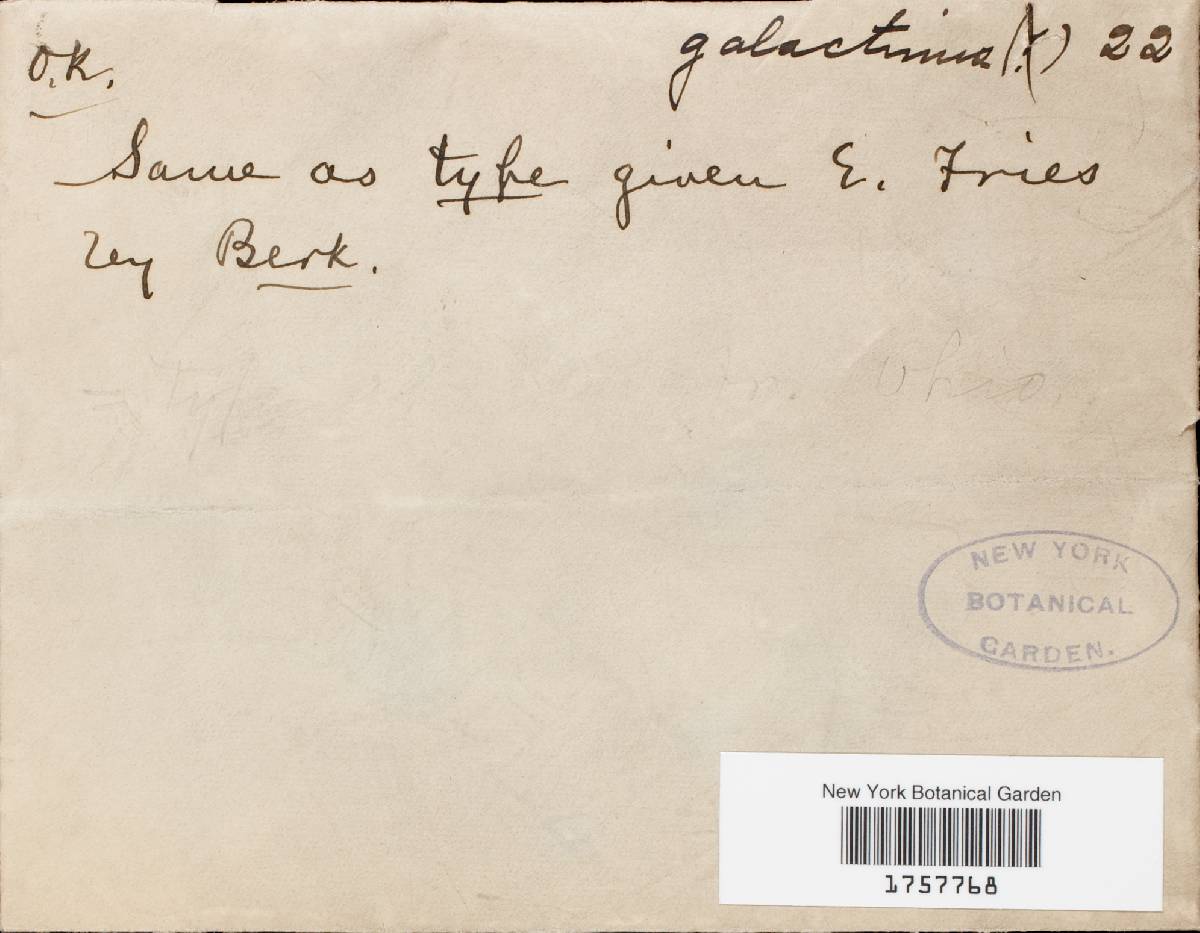 O.K.
galactinus (?) 22
Same as type given E. Fries
by Berk.
type
Ohio.
NEW YORK
BOTANICAL
GARDEN.
New York Botanical Garden
1757768